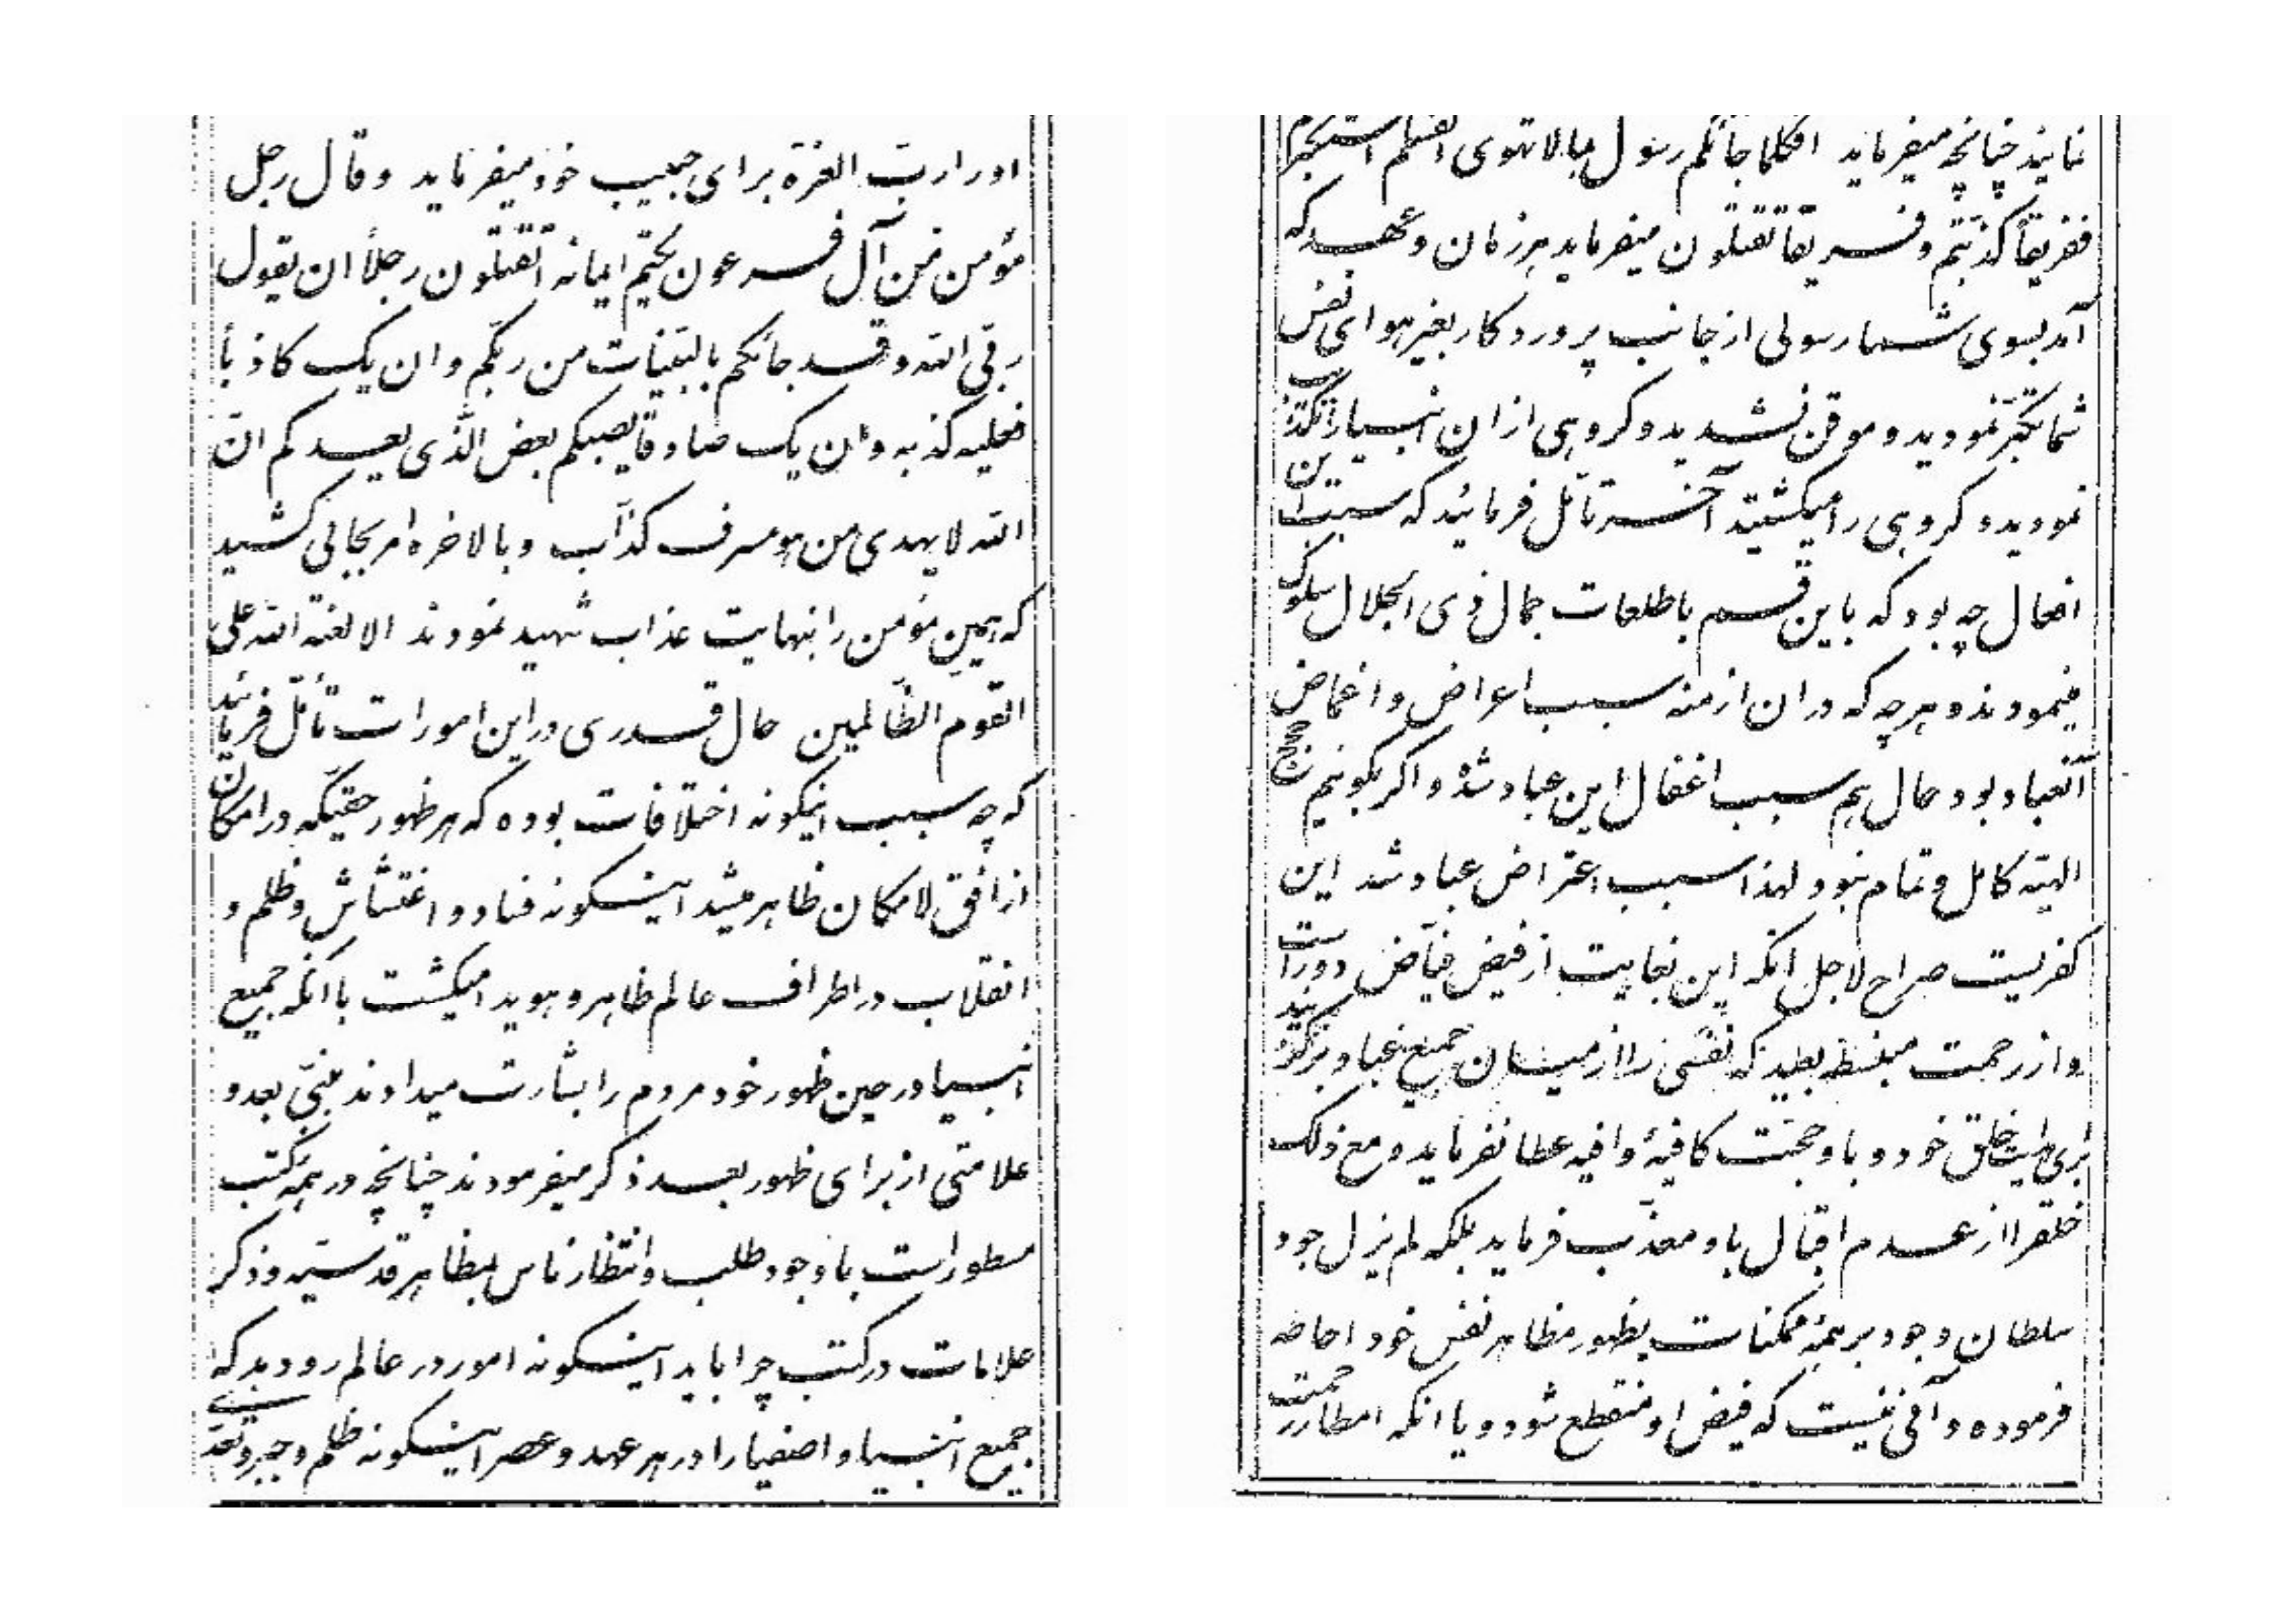 او را رب العزة برای حبیب خود میفرماید وقال رجل
مؤمن من آل فرعون یکتم ایمانه اتقتلون رجلاً ان یقول
ربی الله و قد جائکم بالبینات من ربکم و ان یک کاذباً
فعلیه کذبه و ان یک صادقا یصبکم بعض الذی یعدکم انّ
الله لا یهدی من هو مسرف کذّاب و بالاخره امر بجائی کشید
که همین مؤمن را بنهایت عذاب شهید نمودند الا لعنة الله علی
القوم الظّالمین حال قدری در این امورات تأمّل فرمائید
که چه سبب اینگونه اختلافات بوده که هر ظهور حقیکه در امکان
از افق لامکان ظاهر میشد اینگونه فساد و اغتشاش و ظلم و
انقلاب در اطراف عالم ظاهر و هویدا میگشت با انکه جمیع
انبیا در حین ظهور خود مردم را بشارت میدادند بنبیّ بعد و
علامتی از برای ظهور بعد ذکر میفرمودند چنانچه در همهٔ کتب
مسطور است با وجود طلب و انتظار ناس بمظاهر قدسیّه و ذکر
علامات در کتب چرا باید اینگونه امور در عالم رو دهد که
جمیع انبیا و اصفیا را در هر عهد و عصر اینگونه ظلم و جبر و تعدّی
نمایند چنانچه میفرماید افکلما جائکم رسول بما لا تهوی انفسکم استکبرتم
ففریقاً کذّبتم و فریقاً تقتلون میفرماید هر زمان و عهد که
آمد بسوی شما رسولی از جانب پروردکار بغیر هوای نفس
شما تکبّر نمودید و موقن نشدید و کروهی از ان انبیا را تکذیب
نمودید و کروهی را میکشتید آخر تأمّل فرمائید که سبب این
افعال چه بود که باین قسم با طلعات جمال ذی الجلال سلوک
مینمودند و هر چه که در ان ازمنه سبب اعراض و اغماض
آنعباد بود حال هم سبب اغفال این عباد شده و اکر بکوئیم حجج
الهیّه کامل و تمام نبود لهذا سبب اعتراض عباد شد این
کفریست صراح لاجل انکه این بغایت از فیض فیّاض دور است
و از رحمت منبسطه بعید که نفسی را از میان جمیع عباد برگزیند
برای هدایت خلق خود و باو حجّت کافیهٔ وافیه عطا نفرماید و مع ذلک
خلقرا از عدم اقبال باو معذّب فرماید بلکه لم یزل جود
سلطان وجود بر همهٔ ممکنات بظهور مظاهر نفس خود احاطه
فرموده و آنی نیست که فیض او منقطع شود و یا انکه امطار رحمت